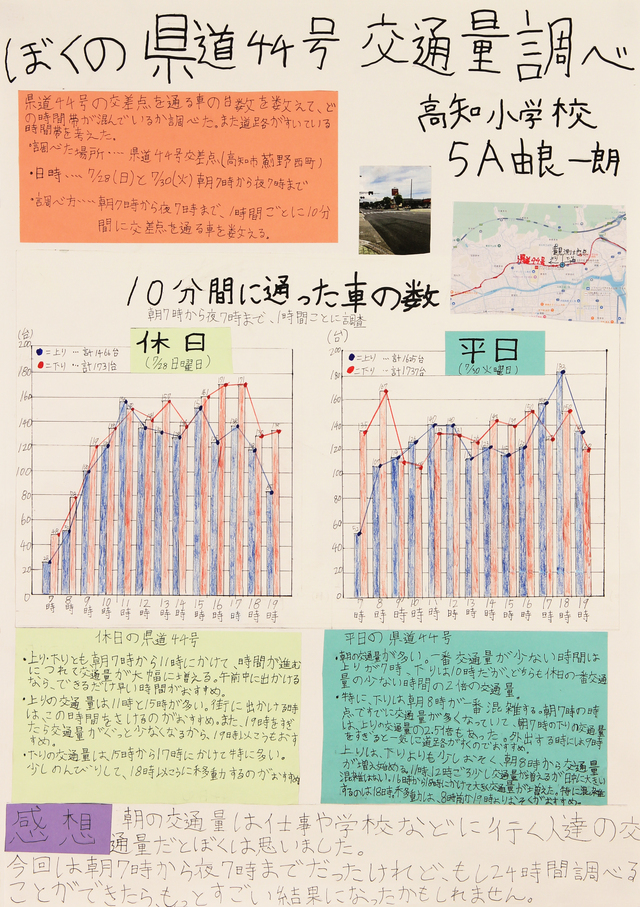 ぼくの県道44号交通量調べ
高知小学校
5A由良一朗
県道44号の交差点を通る車の台数を数えて、ど
の時間帯が混んでいるか調べた。また道路がすいている
時間帯を考えた。
・調べた場所…県道44号交差点(高知市薊野西町)
・日時…7/28(日)と7/30(火)朝7時から夜7時まで
・調べ方…朝7時から夜7時まで、1時間ごとに10分
間に交差点を通る車を数える。
県道44号
10分間に通った車の数
朝7時から夜7時まで、1時間ごとに調査
(台)
休日
(7/28日曜日)
上り…計1466台
下り…計1731台
200
180
160
140
120
100
80
60
40
20
0
7時 8時 9時 10時 11時 12時 13時 14時 15時 16時 17時 18時 19時
(台)
平日
(7/30火曜日)
上り…計1625台
下り…計1737台
200
180
160
140
120
100
80
60
40
20
0
7時 8時 9時 10時 11時 12時 13時 14時 15時 16時 17時 18時 19時
休日の県道44号
・上り・下りとも朝7時から11時にかけて、時間が進む
につれて交通量が大幅に増える。午前中に出かける
なら、できるだけ早い時間がおすすめ。
・上りの交通量は11時と15時が多い。街に出かける時
は、この日時間をさけるのがおすすめ。また、19時をすぎ
たら交通量がぐっと少なくなるから、19時以こうもおす
すめ。
・下りの交通量は、15時から17時にかけて特に多い。
少しのんびりして、18時以こうに移動するのがおすすめ
平日の県道44号
・朝の交通量が多い。一番交通量が少ない時間は
上りが7時、下りは10時だが、どちらも休日の一番交通
量の少ない時間の2倍の交通量。
・特に、下りは朝8時が一番混雑する。朝7時の時
点ですでに交通量が多くなっていて、朝7時の下りの交通量
は、上りの交通量の2.5倍もあった。外出する時は9時
をすぎると一気に道路がすくのでおすすめ。
上りは、下りよりも少しおそく、朝8時から交通量
が増え始める。11時、12時ごろ少し交通量が増えるが日中に大きい
混雑はない。16時から18時にかけて大きく交通量が増えた。特に混雑
するのは18時。移動は、8時前か19時よりおそくがおすすめ。
感想
朝の交通量は仕事や学校などに行く人達の交
通量だとぼくは思いました。
今回は朝7時から夜7時までだったけれど、もし24時間調べる
ことができたら、もっとすごい結果になったかもしれません。